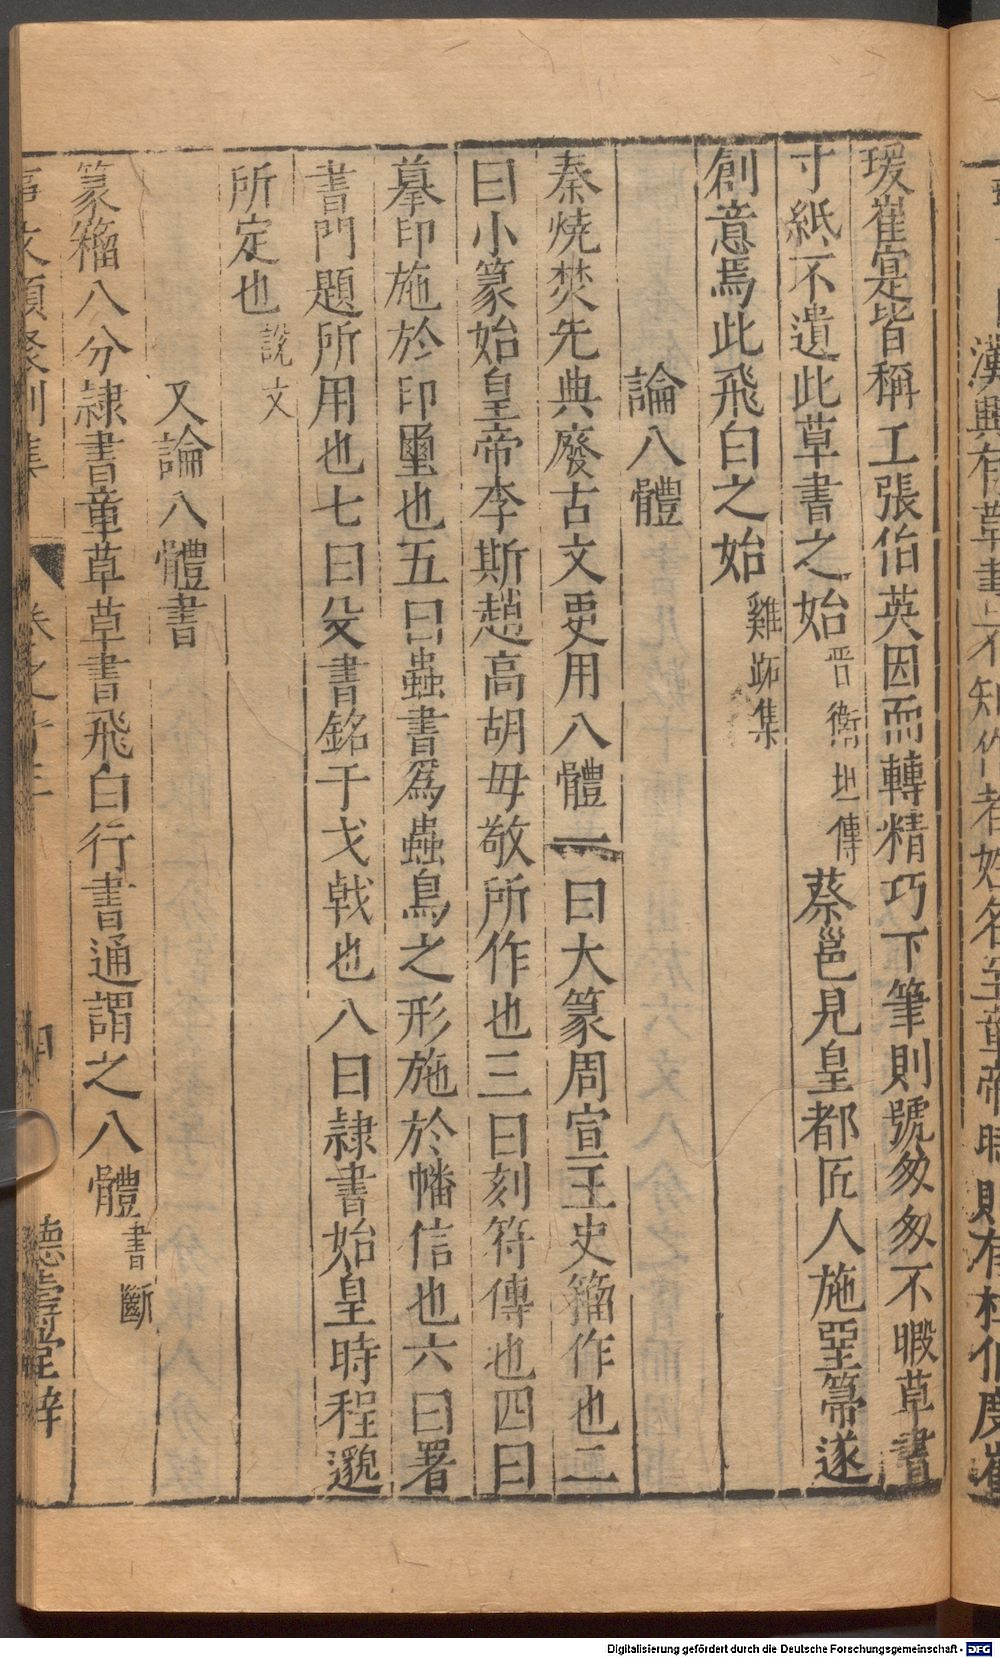 漢興有草書
不知作者姓名至章帝時
則有杜伯度崔
瑗崔寔皆稱工張伯英因而轉精巧下筆則號匆匆不暇草書
寸紙不遺此草書之始晉衛恒傳蔡邕見皇都匠人施堊箒遂
創意焉此飛白之始雞跖集
論八體
秦燒焚先典廢古文更用八體一曰大篆周宣王史籀作也二
曰小篆始皇帝李斯趙高胡毋敬所作也三曰刻符傳也四曰
摹印施於印璽也五曰蟲書為蟲鳥之形施於幡信也六曰署
書門題所用也七曰殳書銘于戈戟也八曰隷書始皇時程邈
所定也說文
又論八體書
篆籀八分隷書章草草書飛白行書通謂之八體書斷
事文類聚別集
卷之十三
德壽堂梓
Digitalisierung gefördert durch die Deutsche Forschungsgemeinschaft - DFG